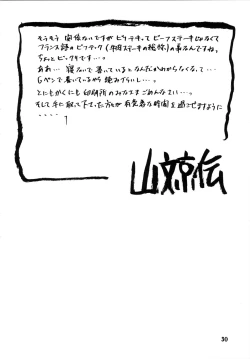 そうそう 関係ないですが ビフテキって ビーフステーキじゃなくて
フランス語の ビフテック (牛肉ステーキの総称) の事なんですね。
ちょっと ビックリです…。
ああ… 寝ないで 書いていると なんだかわからなくなって…
Gペンで 書いているから 絶みグらいし…。
とにもかくにも 印刷所のみなさま ごめんなさい…。
そして 手に取って下さった方が 有意義な時間を過ごせますように
山文京伝
50